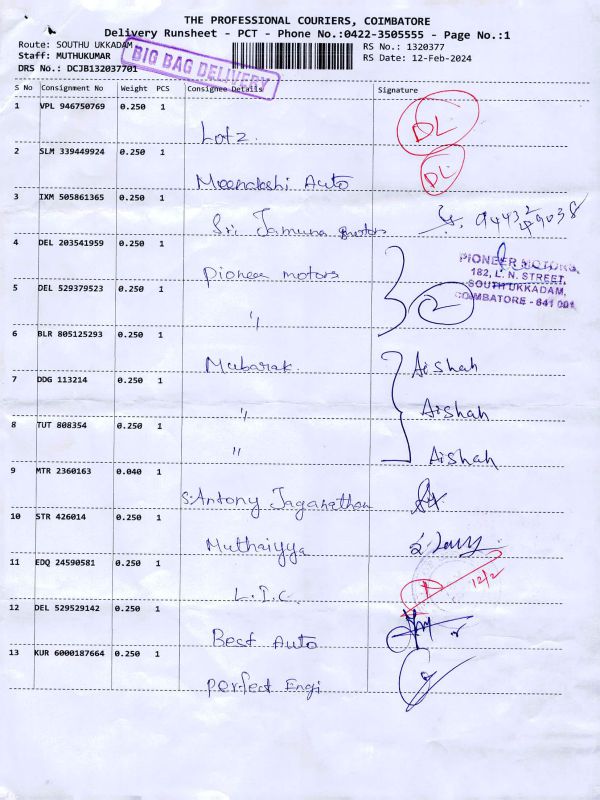 THE PROFESSIONAL COURIERS, COIMBATORE
Delivery Runsheet - PCT - Phone No.:0422-3505555 - Page No.:1
Route: SOUTHU UKKADAM
RS No.: 1320377
Staff: MUTHUKUMAR
RS Date: 12-Feb-2024
DRS No.: DCJB132037701
BIG BAG DELIVERY
S No Consignment No Weight PCS Consignee Details Signature
1 VPL 946750769 0.250 1
Lotz. DL
2 SLM 339449924 0.250 1
Meenakshi Auto DL
3 IXM 505861365 0.250 1
Sri Jamuna motors
4 DEL 203541959 0.250 1
Pioneer motors
PIONEER MOTORS,
182, L. N. STREET,
SOUTH UKKADAM,
COIMBATORE - 641 001
5 DEL 529379523 0.250 1
" 2
6 BLR 805125293 0.250 1
Mubarak. Aishah
7 DDG 113214 0.250 1
" Aishah
8 TUT 808354 0.250 1
" Aishah
9 MTR 2360163 0.040 1
S. Antony Jaganathan
10 STR 426014 0.250 1
Muthaiyya
11 EDQ 24590581 0.250 1
L.I.C. 12/2
12 DEL 529529142 0.250 1
Best Auto
13 KUR 6000187664 0.250 1
perfect Engi